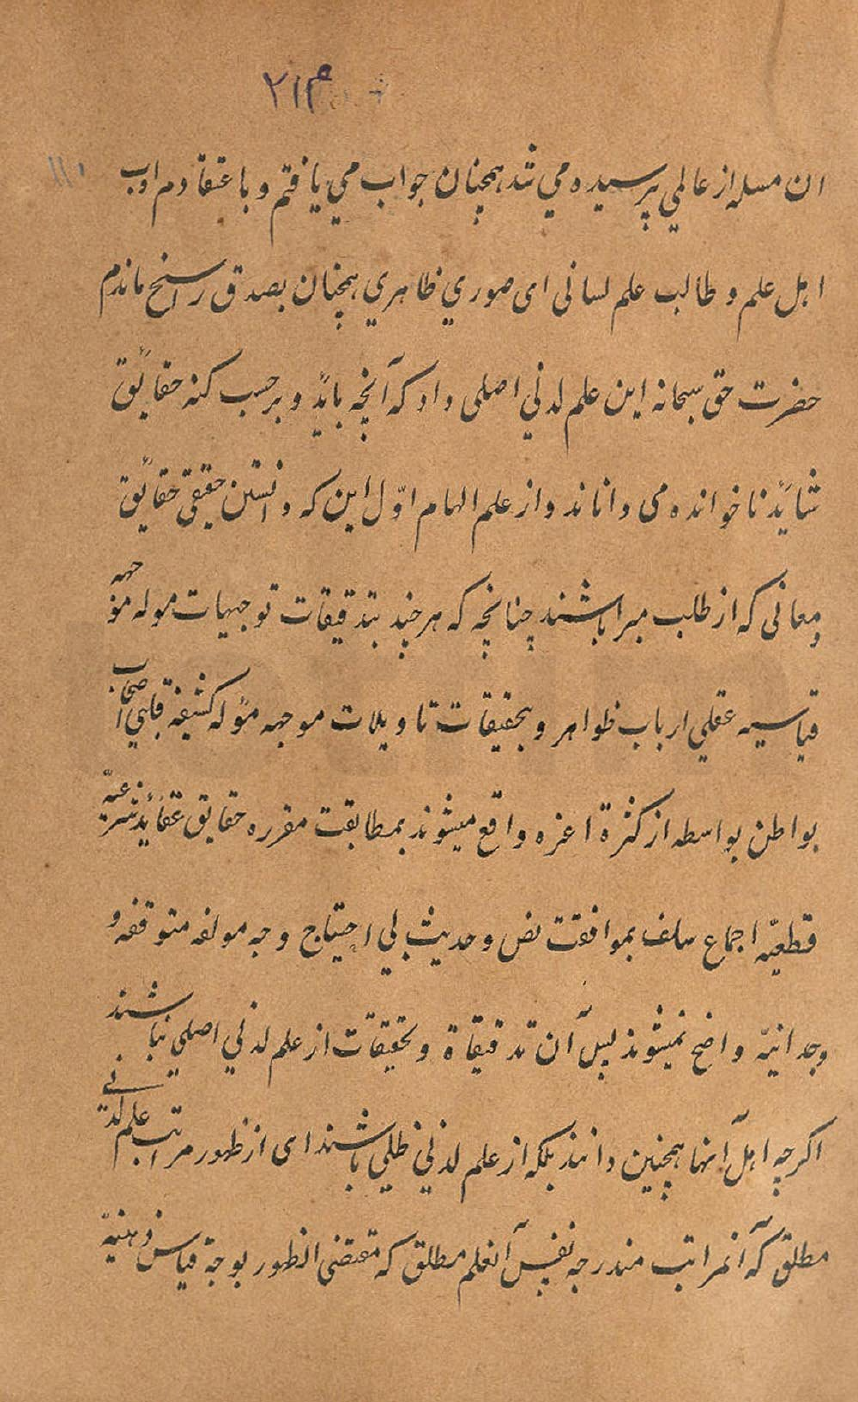 ۲۱۳
ان مسله از عالمي پرسیده مي شد همچنان جواب مي یافتم و باعتقاد م ادب
اهل علم و طالب علم لسانی ای صوري ظاهري همچنان بصدق راسخ ماندم
حضرت حق سبحانه این علم لدني اصلی داد که آنچه باید و برحسب کنه حقایق
شاید ناخوانده می داناند و از علم الهام اوّل این که دانستن حقیقی حقایق
ومعانی که از طلب مبرا باشند چنانچه که هر چند بتدقیقات توجیهات موله موجهه
قیاسیه عقلي ارباب ظواهر و بتحقیقات تاویلات موجهه مؤله کشفیه قلبي اصحاب
بواطن بواسطه از کثرة اعزه واقع میشوند بمطابقت مقرره حقایق عقائد شرعیّه
قطعیّه اجماع سلف بموافقت نص و حدیث بي احتیاج وجه مولفه متوقفه و
وجدانیّه واضح نمیشوند لیس آن تدقیقاة و تحقیقات از علم لدني اصلي نباشند
اکرچه اهل آنها همچنین دانند بلکه از علم لدني ظلي باشند ای از ظهور مراتب علم لدنّي
مطلق که آنمراتب مندرجه نفس آنعلم مطلق که مقتضی الظهور بوجة قیاس ذهنیّه